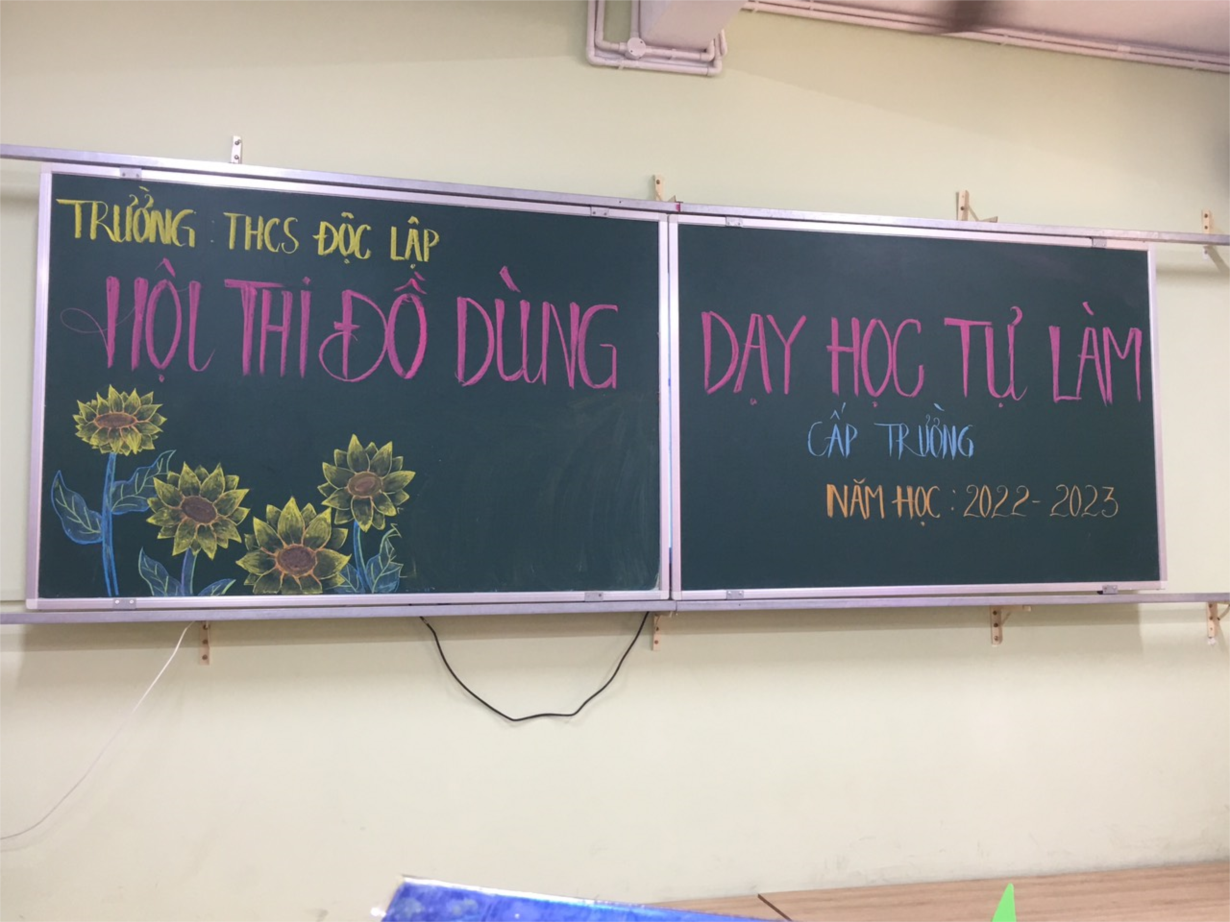 TRƯỜNG : THCS ĐỘC LẬP
HỘI THI ĐỒ DÙNG DẠY HỌC TỰ LÀM
CẤP TRƯỜNG
NĂM HỌC : 2022 - 2023